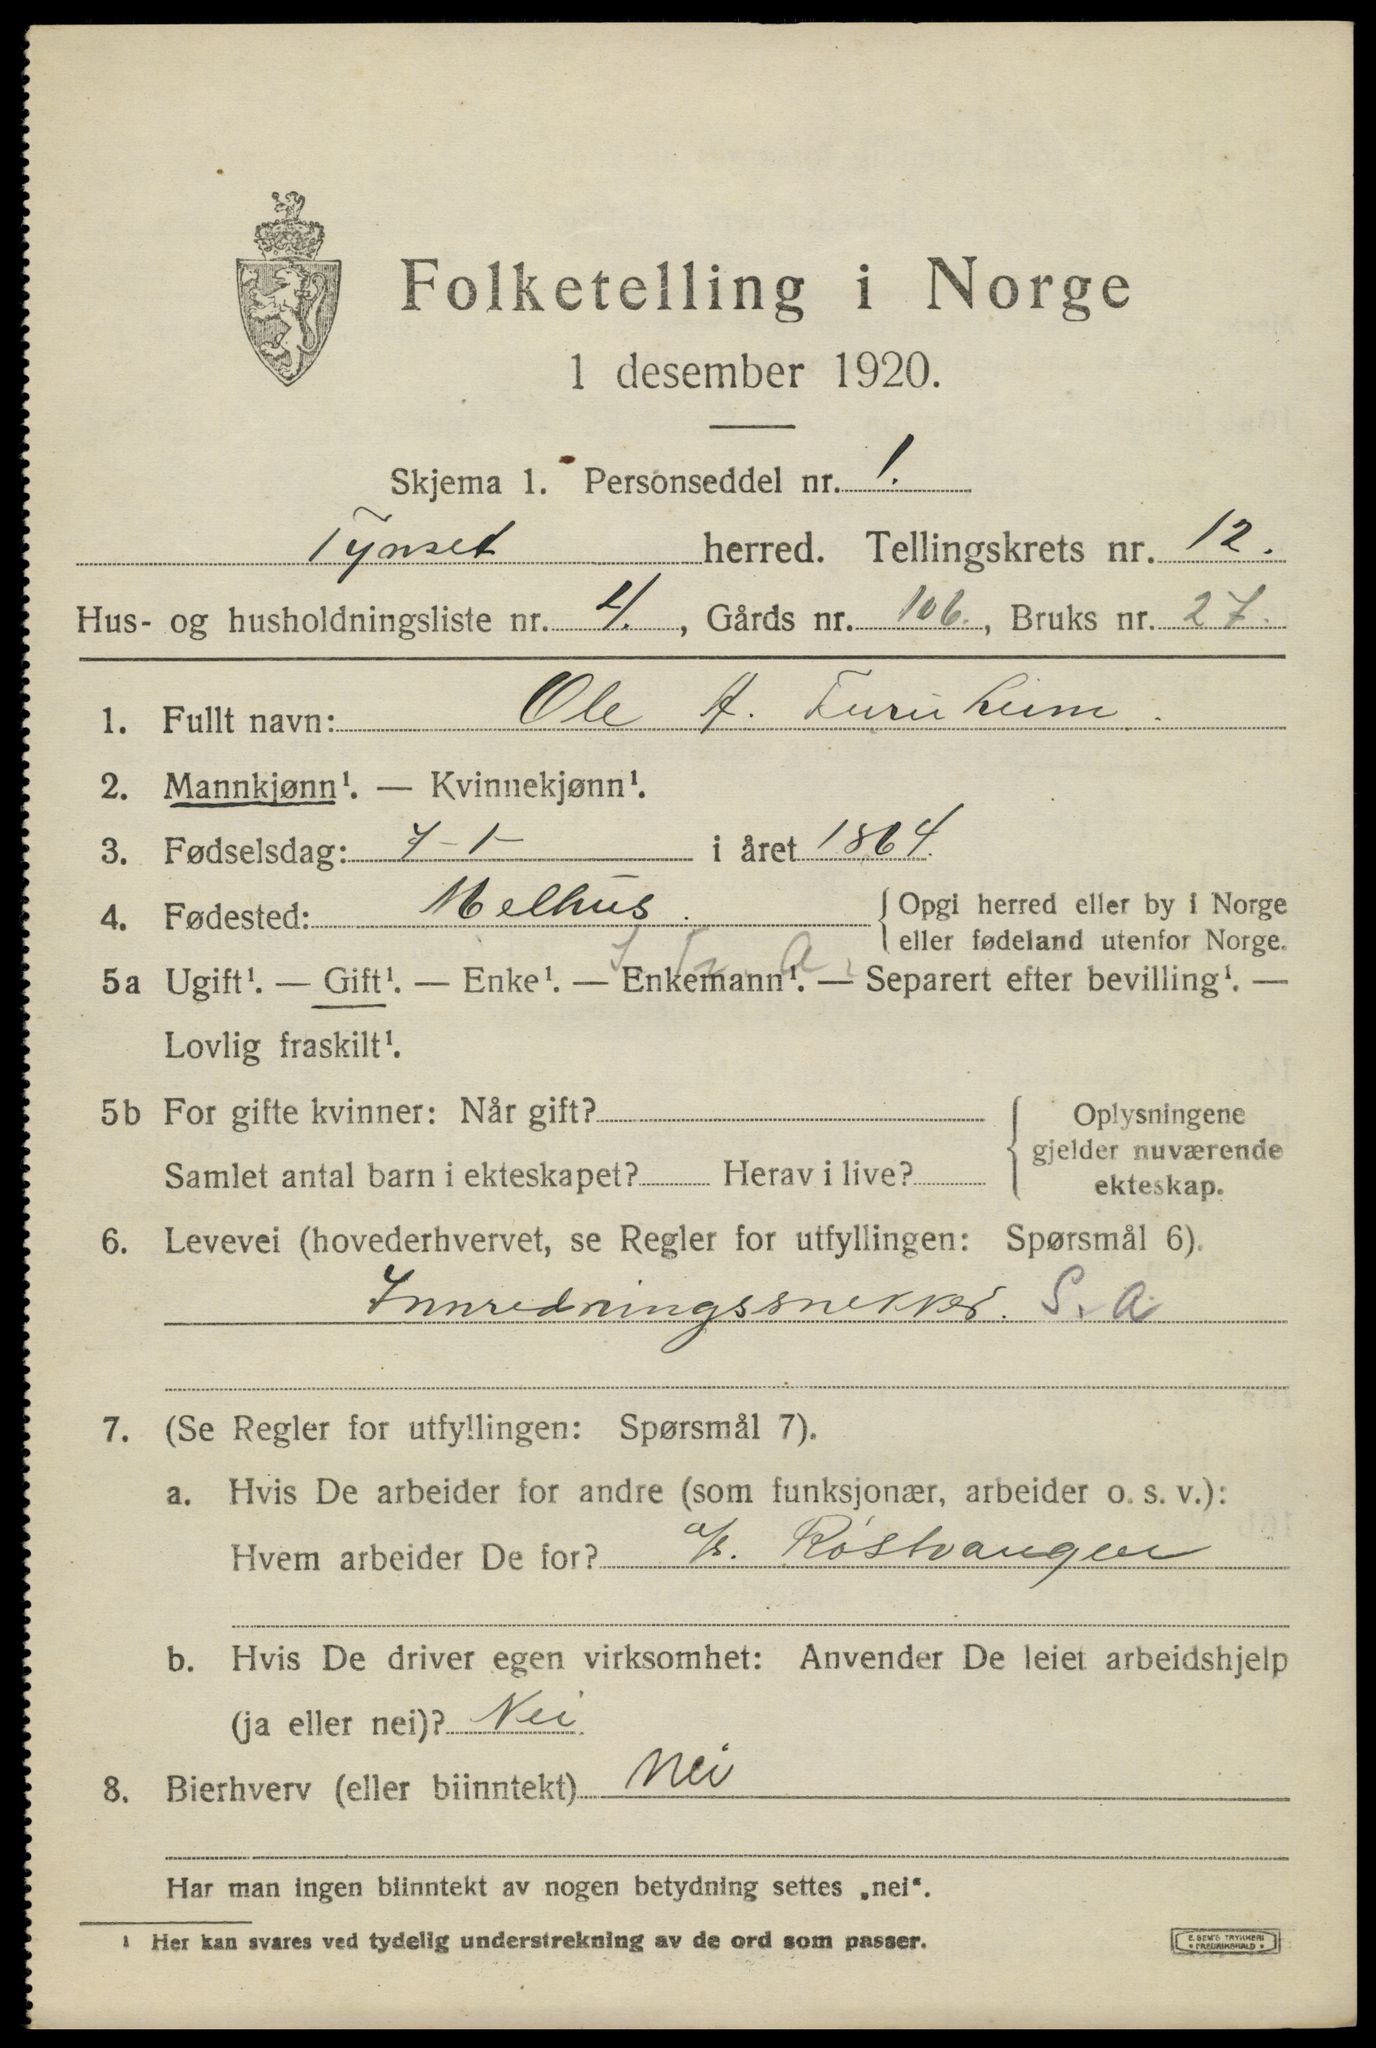 Folketelling i Norge
1 desember 1920.
Skjema 1. Personseddel nr. 1.
Tynset herred. Tellingskrets nr. 12.
Hus- og husholdningsliste nr. 4., Gårds nr. 106., Bruks nr. 27.
1. Fullt navn: Ole A. Furuheim.
2. Mannkjønn¹. — Kvinnekjønn¹.
3. Fødselsdag: 7-1- i året 1864.
4. Fødested: Melhus. {Opgi herred eller by i Norge
eller fødeland utenfor Norge.
5a Ugift¹. — Gift¹. — Enke¹. — Enkemann¹. — Separert efter bevilling¹. —
Lovlig fraskilt¹.
5b For gifte kvinner: Når gift?
Samlet antal barn i ekteskapet? Herav i live?
{Oplysningene
gjelder nuværende
ekteskap.
6. Levevei (hovederhvervet, se Regler for utfyllingen: Spørsmål 6).
Innredningssnekker. S. A
7. (Se Regler for utfyllingen: Spørsmål 7).
a. Hvis De arbeider for andre (som funksjonær, arbeider o. s. v.):
Hvem arbeider De for? a/s. Røstvangen
b. Hvis De driver egen virksomhet: Anvender De leiet arbeidshjelp
(ja eller nei)? Nei.
8. Bierhverv (eller biinntekt) Nei
Har man ingen biinntekt av nogen betydning settes „nei“.
¹ Her kan svares ved tydelig understrekning av de ord som passer.
E. SEM'S TRYKKERI
• FREDRIKSHALD •